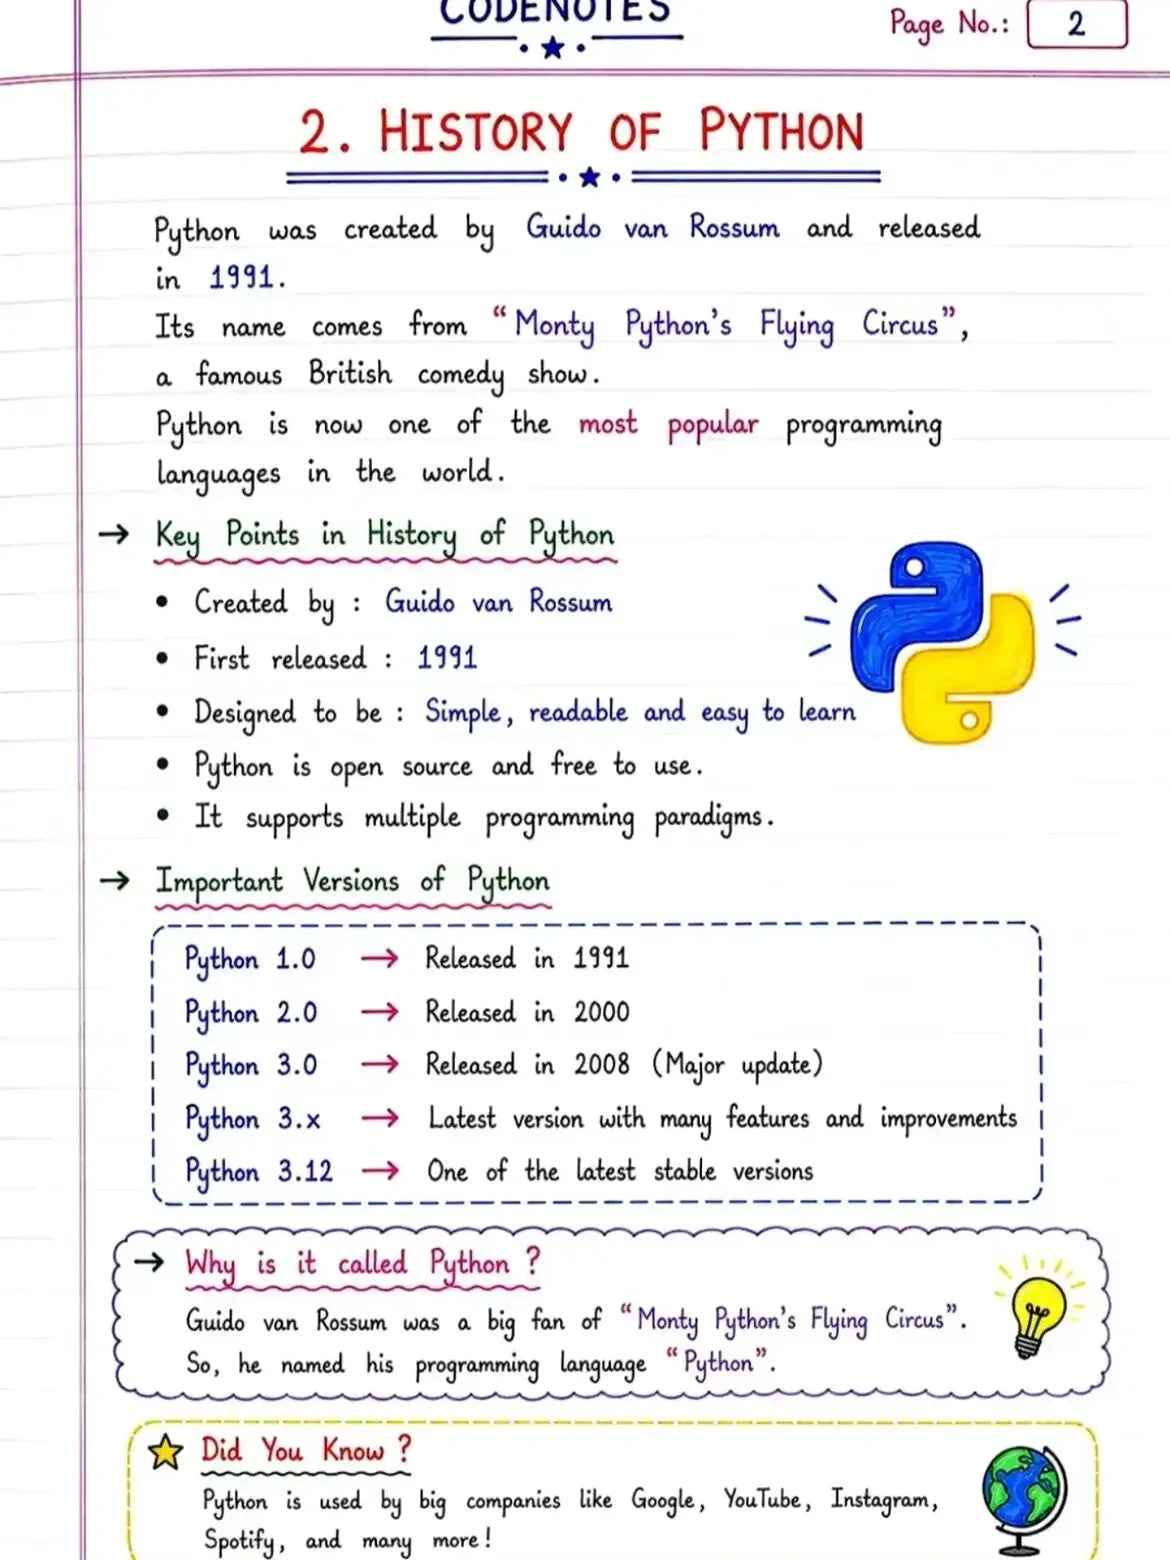 CODENOTES
Page No.: 2
2. HISTORY OF PYTHON
Python was created by Guido van Rossum and released
in 1991.
Its name comes from “Monty Python's Flying Circus”,
a famous British comedy show.
Python is now one of the most popular programming
languages in the world.
→ Key Points in History of Python
• Created by : Guido van Rossum
• First released : 1991
• Designed to be : Simple, readable and easy to learn
• Python is open source and free to use.
• It supports multiple programming paradigms.
→ Important Versions of Python
Python 1.0 → Released in 1991
Python 2.0 → Released in 2000
Python 3.0 → Released in 2008 (Major update)
Python 3.x → Latest version with many features and improvements
Python 3.12 → One of the latest stable versions
→ Why is it called Python ?
Guido van Rossum was a big fan of “Monty Python's Flying Circus”.
So, he named his programming language “Python”.
Did You Know ?
Python is used by big companies like Google, YouTube, Instagram,
Spotify, and many more!